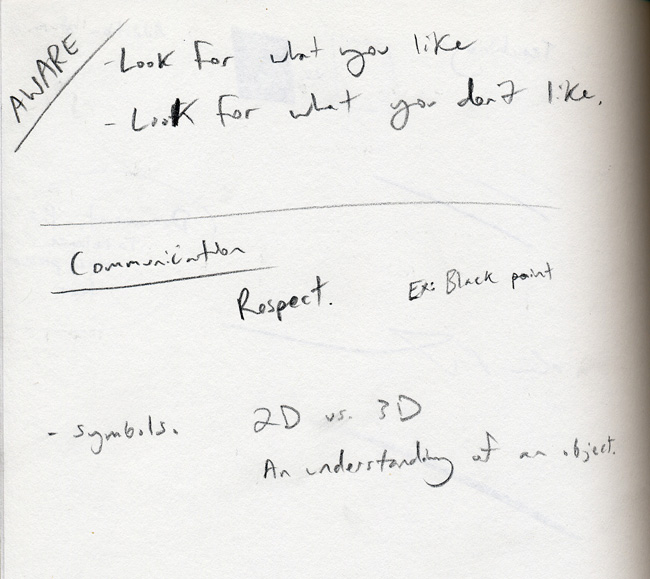 AWARE
- Look for what you like
- Look for what you don't like.
Communication
Respect. Ex: Black paint
- symbols. 2D vs. 3D
An understanding of an object.